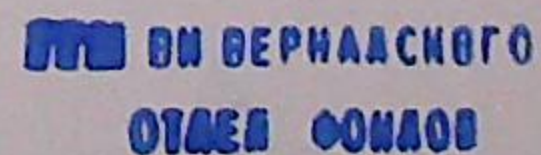 ГГМ ВИ ВЕРНАДСКОГО
ОТДЕЛ ФОНДОВ